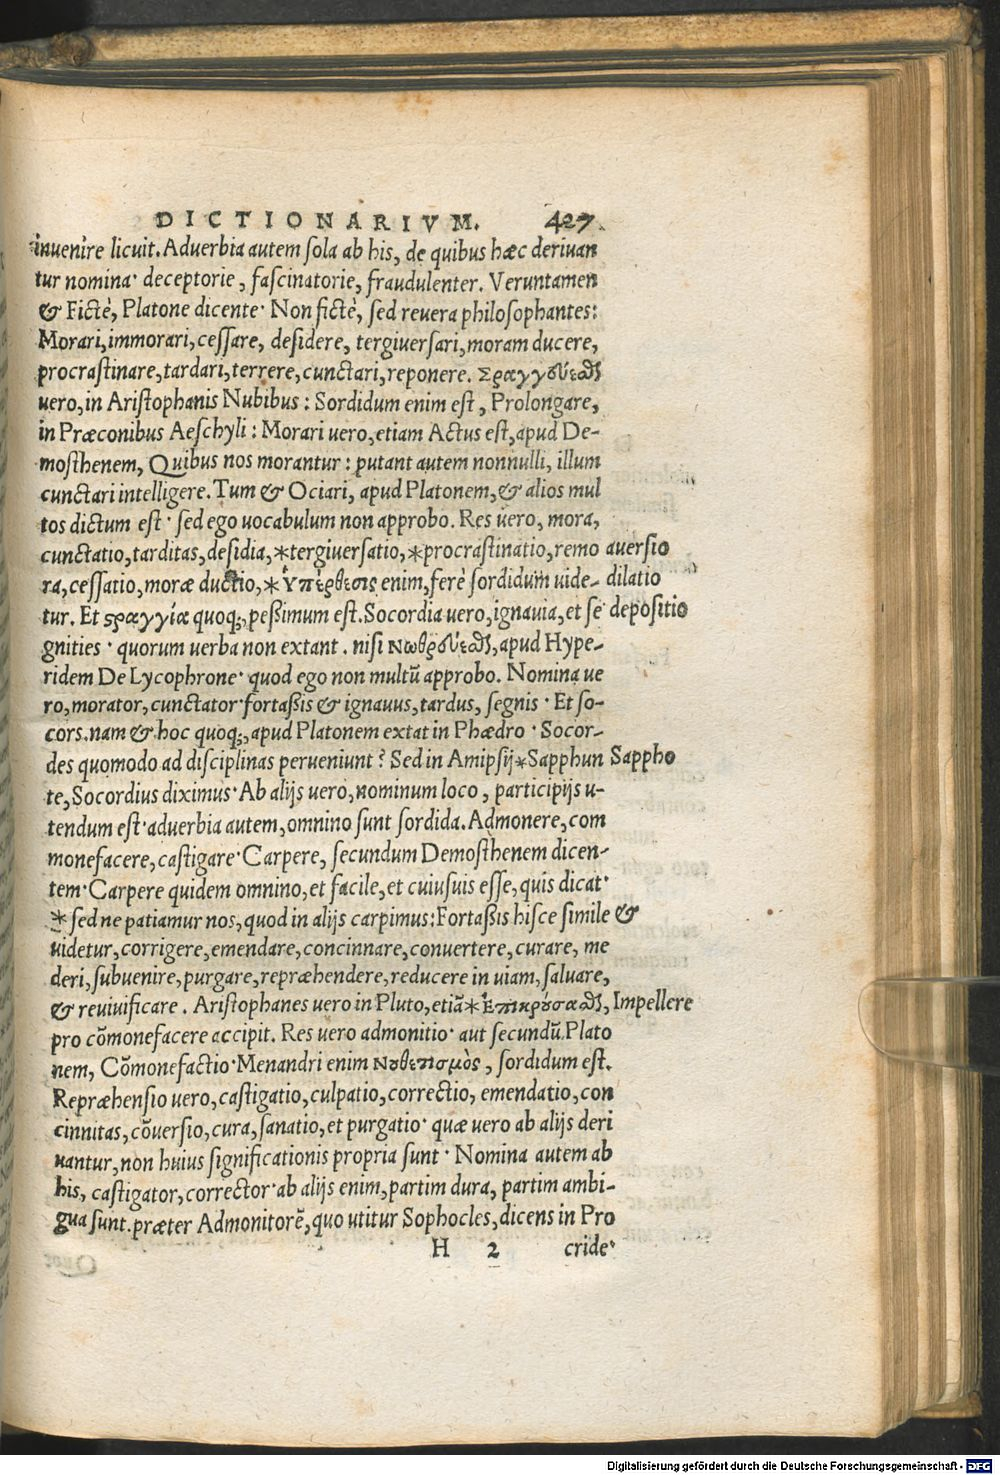 DICTIONARIVM. 427
inuenire licuit. Aduerbia autem sola ab his, de quibus hæc deriuan
tur nomina· deceptorie, fascinatorie, fraudulenter. Veruntamen
& Fictè, Platone dicente· Non fictè, sed reuera philosophantes:
Morari, immorari, cessare, desidere, tergiuersari, moram ducere,
procrastinare, tardari, terrere, cunctari, reponere. Στραγγεύεσθαι
uero, in Aristophanis Nubibus: Sordidum enim est, Prolongare,
in Præconibus Aeschyli: Morari uero, etiam Actus est, apud De-
mosthenem, Quibus nos morantur: putant autem nonnulli, illum
cunctari intelligere. Tum & Ociari, apud Platonem, & alios mul
tos dictum est· sed ego uocabulum non approbo. Res uero, mora,
cunctatio, tarditas, desidia, *tergiuersatio, *procrastinatio, remo auersio
ra, cessatio, moræ ductio, *Ὑπέρθεσις enim, ferè sordidum uide- dilatio
tur. Et στραγγία quoq;, pessimum est. Socordia uero, ignauia, et se depositio
gnities· quorum uerba non extant. nisi Νωθρεύεσθαι, apud Hype-
ridem De Lycophrone· quod ego non multũ approbo. Nomina ue
ro, morator, cunctator·fortassis & ignauus, tardus, segnis· Et so-
cors. nam & hoc quoq;, apud Platonem extat in Phædro· Socor-
des quomodo ad disciplinas perueniunt? Sed in Amipsij *Sapphun Sappho
te, Socordius diximus· Ab alijs uero, nominum loco, participijs u-
tendum est· aduerbia autem, omnino sunt sordida. Admonere, com
monefacere, castigare· Carpere, secundum Demosthenem dicen-
tem· Carpere quidem omnino, et facile, et cuiusuis esse, quis dicat·
* sed ne patiamur nos, quod in alijs carpimus: Fortassis hisce simile &
uidetur, corrigere, emendare, concinnare, conuertere, curare, me
deri, subuenire, purgare, repræhendere, reducere in uiam, saluare,
& reuiuificare. Aristophanes uero in Pluto, etiã *Ἐπικρούσασθαι, Impellere
pro cõmonefacere accipit. Res uero admonitio· aut secundũ Plato
nem, Cõmonefactio· Menandri enim Νουθετισμὸς, sordidum est.
Repræhensio uero, castigatio, culpatio, correctio, emendatio, con
cinnitas, cõuersio, cura, sanatio, et purgatio· quæ uero ab alijs deri
uantur, non huius significationis propria sunt· Nomina autem ab
his, castigator, corrector· ab alijs enim, partim dura, partim ambi-
gua sunt. præter Admonitorẽ, quo utitur Sophocles, dicens in Pro
H 2 cride·
Digitalisierung gefördert durch die Deutsche Forschungsgemeinschaft - DFG